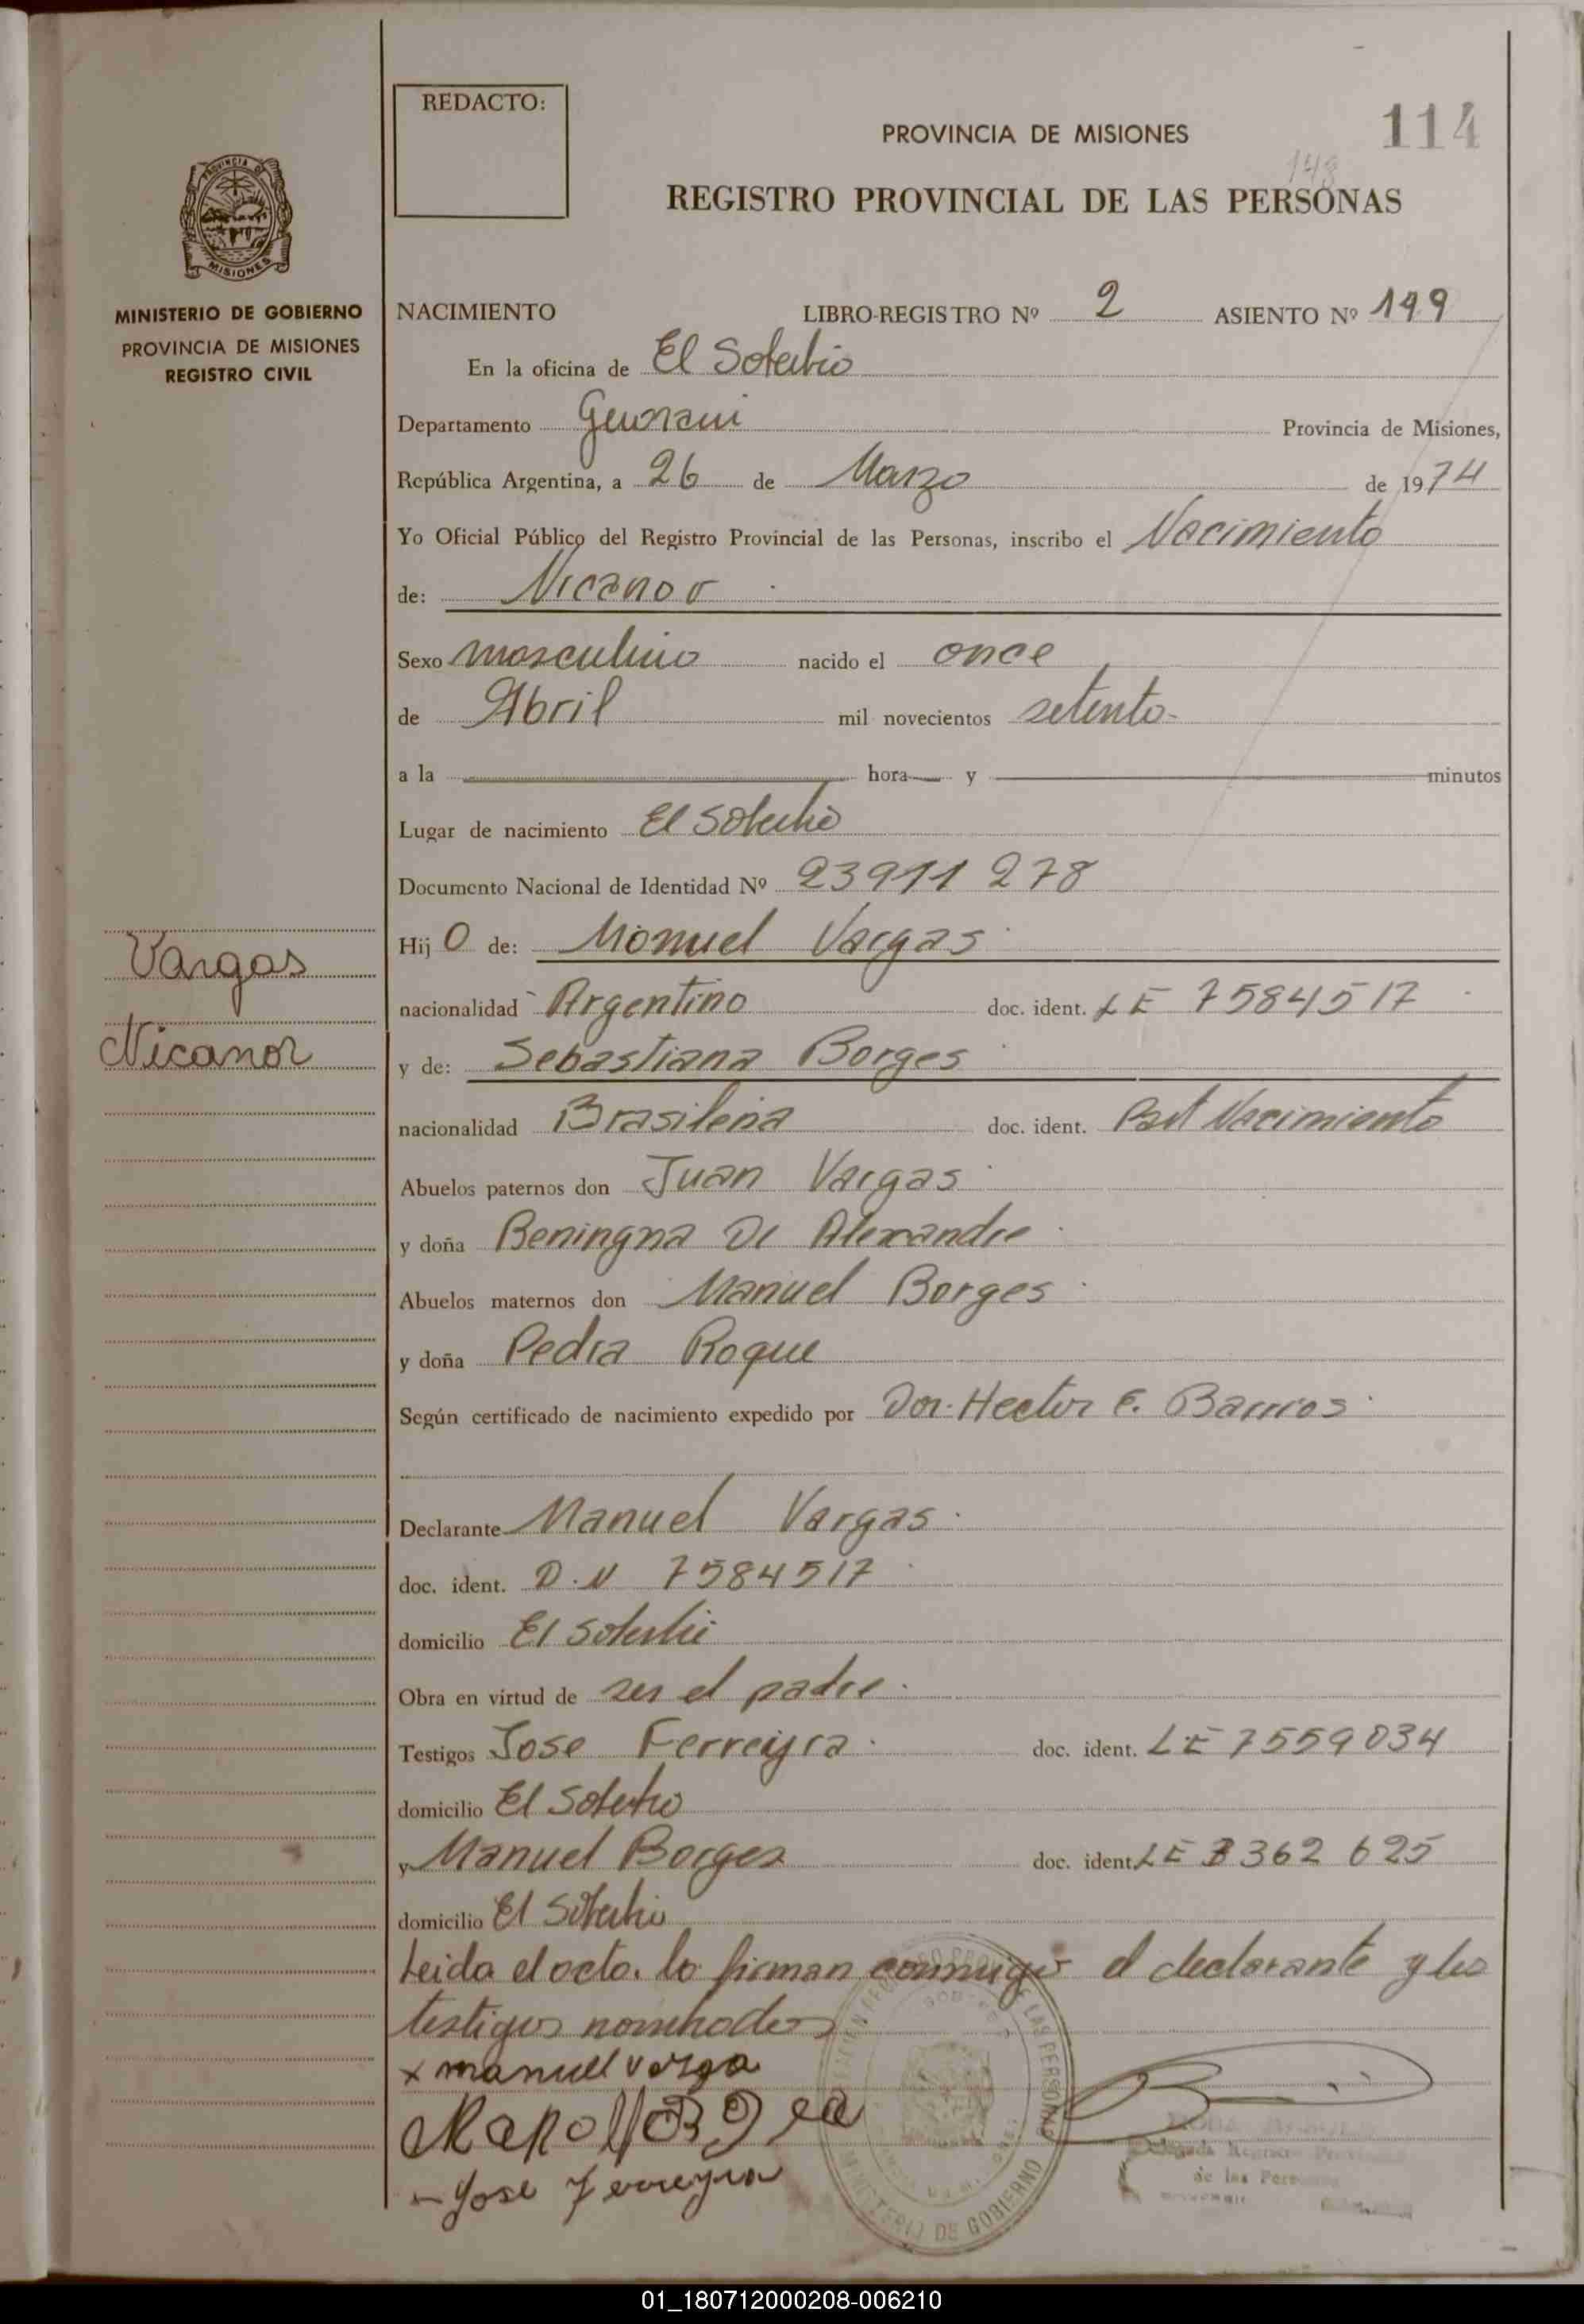 REDACTO:
PROVINCIA DE MISIONES
114
148
REGISTRO PROVINCIAL DE LAS PERSONAS
PROVINCIA DE
MISIONES
MINISTERIO DE GOBIERNO
PROVINCIA DE MISIONES
REGISTRO CIVIL
NACIMIENTO LIBRO-REGISTRO Nº 2 ASIENTO Nº 149
En la oficina de El Soberbio
Departamento Guarani Provincia de Misiones,
República Argentina, a 26 de Marzo de 1974
Yo Oficial Público del Registro Provincial de las Personas, inscribo el Nacimiento
de: Nicanor
Sexo masculino nacido el once
de Abril mil novecientos setenta-
a la hora y minutos
Lugar de nacimiento El Soberbio
Documento Nacional de Identidad Nº 23911278
Hij O de: Manuel Vargas
Vargas
nacionalidad Argentino doc. ident. LE 7584517
Nicanor
y de: Sebastiana Borges
nacionalidad Brasileña doc. ident. Part Nacimiento
Abuelos paternos don Juan Vargas
y doña Beningna De Alexandre
Abuelos maternos don Manuel Borges
y doña Pedra Roque
Según certificado de nacimiento expedido por Dor. Hector E. Barrios
Declarante Manuel Vargas
doc. ident. D.N 7584517
domicilio El Soberbio
Obra en virtud de ser el padre.
Testigos Jose Ferreyra doc. ident. LE 7559034
domicilio El Soberbio
y Manuel Borges doc. ident. LE 8362625
domicilio El Soberbio
Leida el acta. la firman conmigo el declarante y los
testigos nombrados
x manuel varga
- Jose Ferreyra
LAS PERSONAS
MINISTERIO DE GOBIERNO
de las
01_180712000208-006210